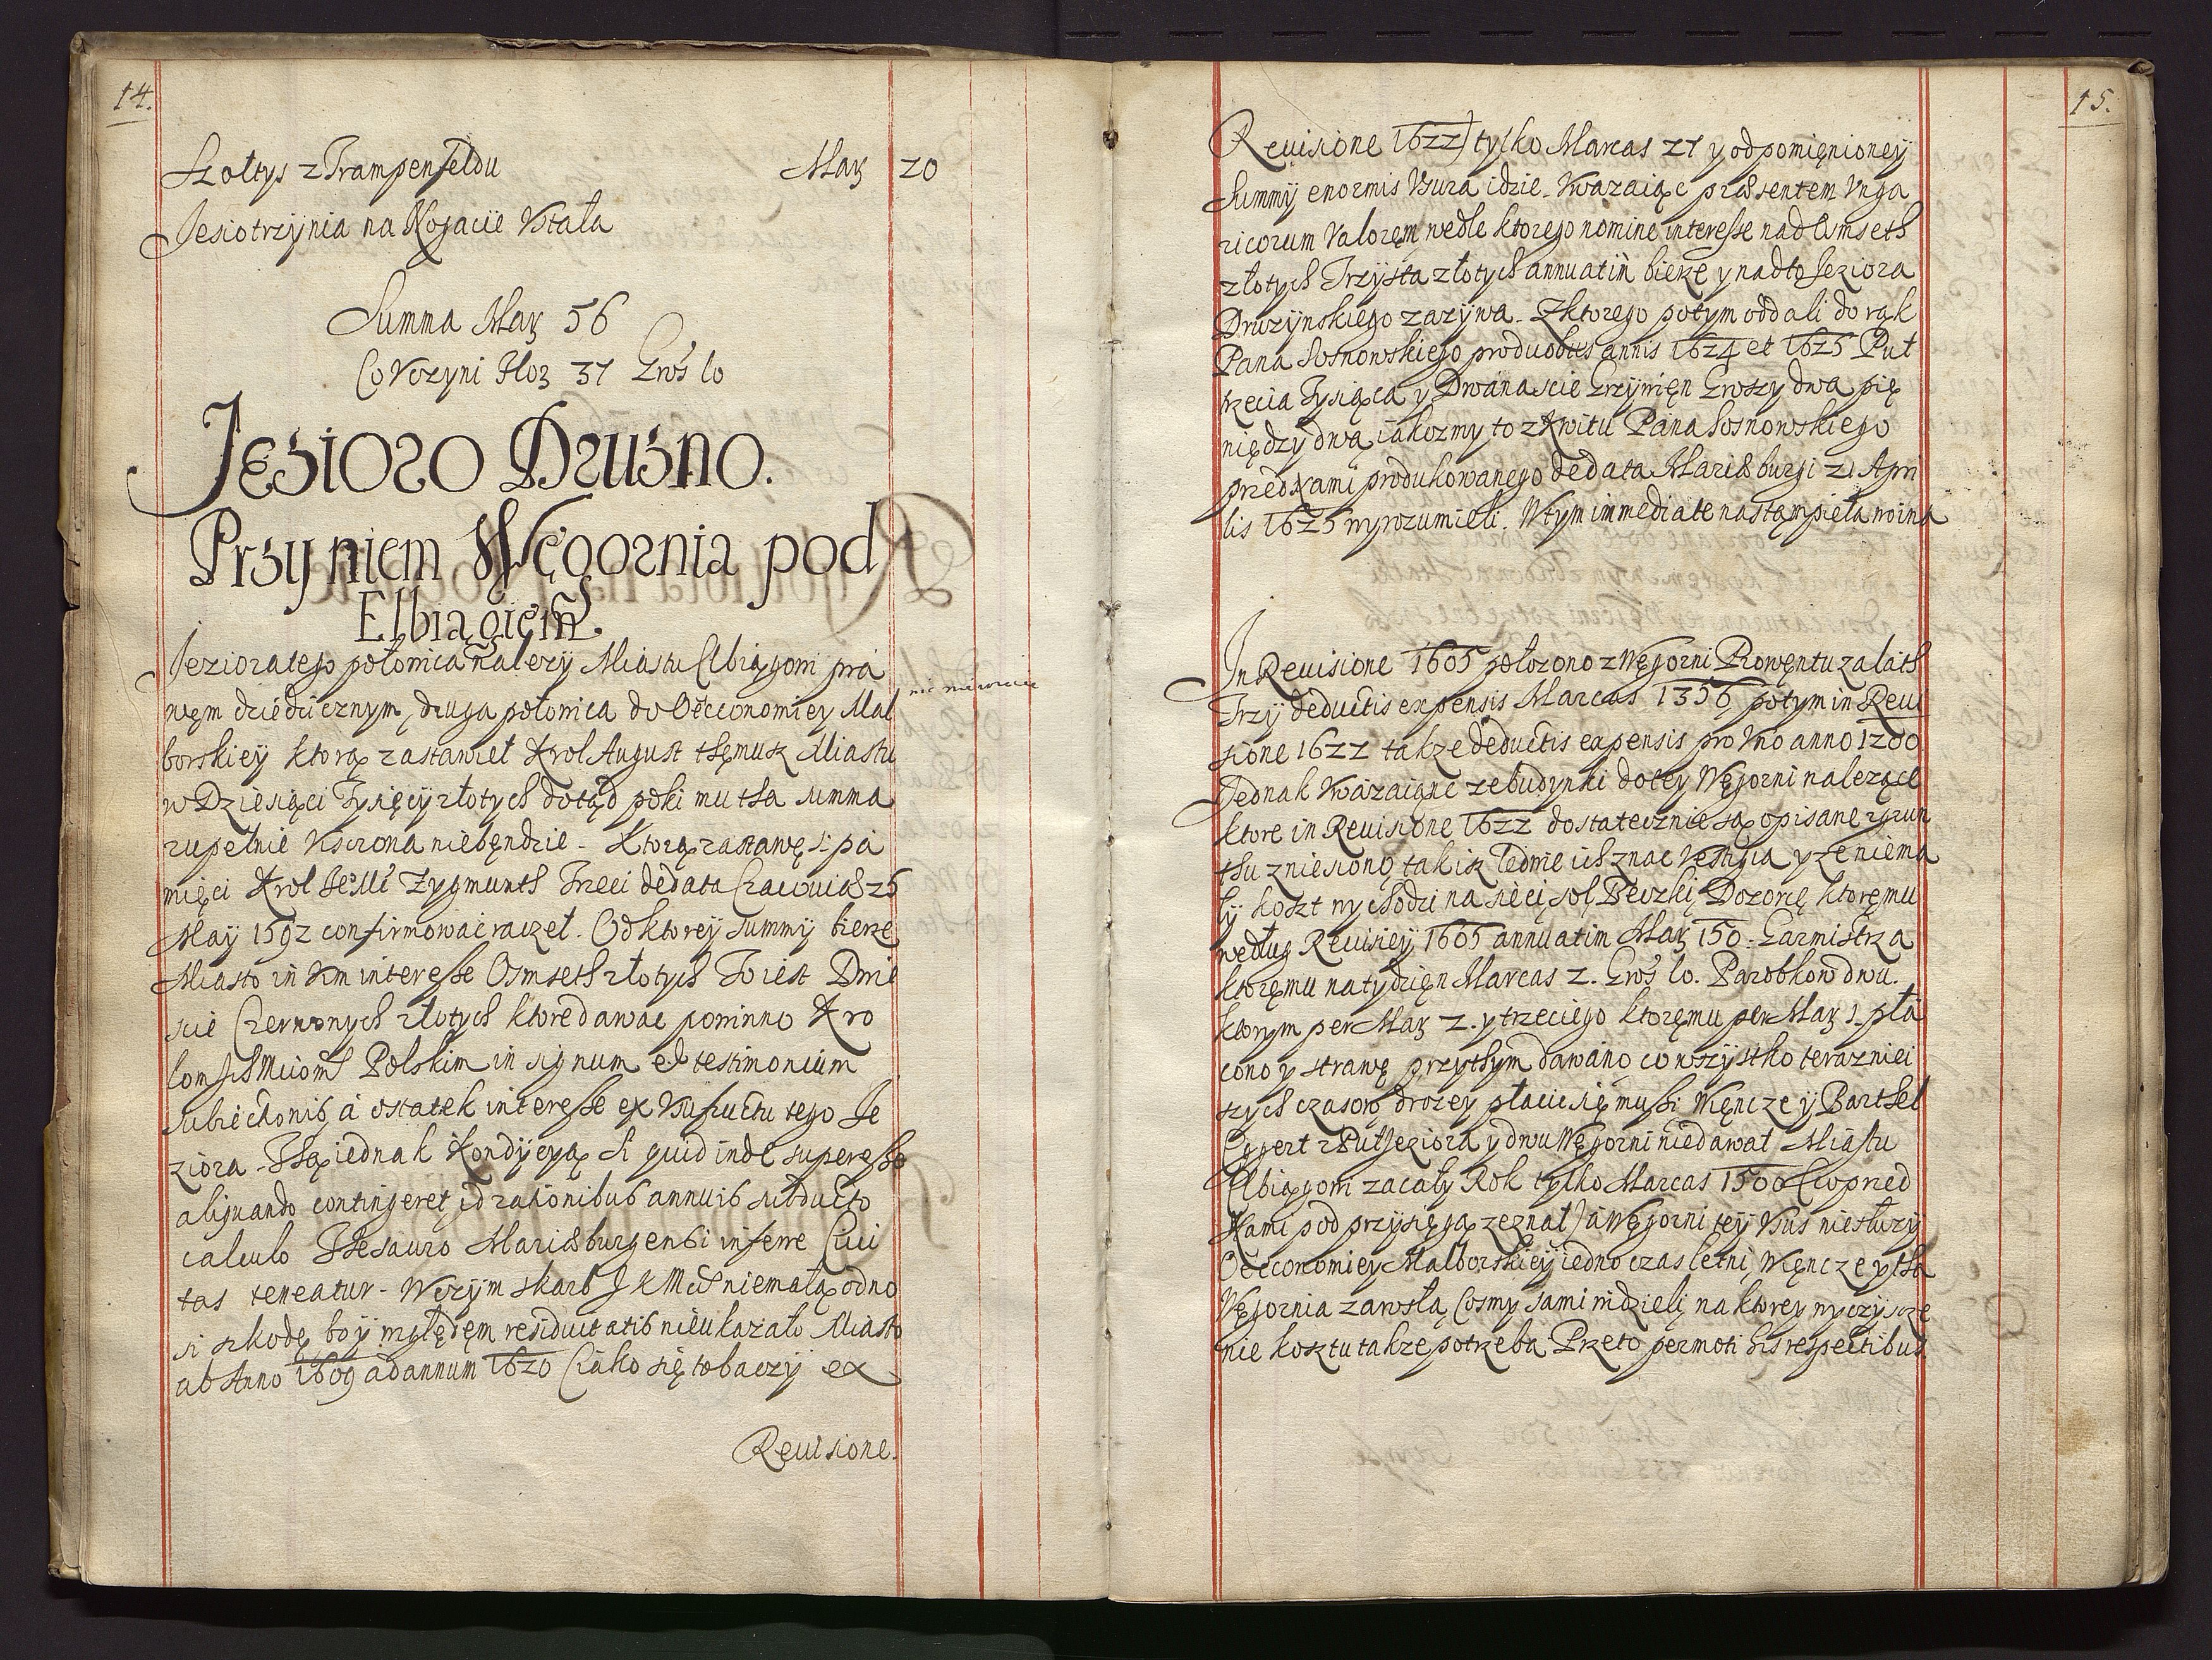 14.
Szołtys z Trampenfeldu Mar 20
Jesiotrzynia na Nogacie Vstała
Summa Mar 56
Co Vczyni Floz 37 Gros 10
Jezioro Druzno.
Przy niem Węgornia pod
Elbiągiem.
Jeziora tego połowica należy Miastu Elbiągowi prá
węm dziedzicznym, druga połowica do Oeconomiey Mal
borskiey ktorą zastawieł Krol August thęmusz Miastu
w Dziesiąci Tysięcy złotych dotąd poki mu tha summa
zupełnie Visczona niebęndzie - Ktorą zastawę S. pa
mięci Krol JeMć Zygmunth Trzeci de data Cracouiæ 25
May 1592 confirmowac raczeł. Od ktorey Summy bierze
Miasto in Vim interesse Osmseth złotych To iest Dwie
scie Czerwonych złotych ktore dawac powinno Kro
lom Polskim in signum et testimonium
subiectionis, á ostatek interesse ex Vsufructu tego Je
ziora - Thą iednak Kondycyą Si quid inde superesse
aliquando contingeret id rationibus annuis subducto
calculo Thesauro Mariæburgensi inferre Ciui
tas teneatur - W czym skarb J K Mci niemałą odno
si szkodę bo y względęm residuitatis nieukazało Miasto
ab Anno 1609 ad annum 1620 (iáko się tobaczy ex
Reuisione.
15.
Reuisione 1622) tylko Marcas 27 y odpomięnioney
Summy enormis Vsura idzie - Vwazaiąc præsentem Vnga
ricorum Valorem wedle ktorego nomine interesse nad Osmseth
złotych Trzysta złotych annuatim bierze y nadto Jeziora
Druzynskiego zazywa - Z ktorego potym oddali do rąk
Pana Sosnowskiego pro duobus annis 1624 et 1625 Puł
trzecia Tysiąca y Dwanascie Grzywięn Groszy dwa pię
niędzy dwa iakozmy to z Kwitu Pána Sosnowskiego
przed Nami produkowanego de data Mariæburgi 21 Apri
lis 1625 wyrozumieli. W tym immediate nastąmpieła woina
In Reuisione 1605 położono z Węgorni Prowęntu za lath
Trzy deductis expensis Marcas 1356 potym in Reui
sione 1622 takze deductis expensis pro Vno anno 1200
Jednak Vwázaiąc ze budynki do tey Węgorni nalezące
ktore in Reuisione 1622 dostatecznie są opisane z grun
thu zniesiono tak iz ledwie ich znac Vestigia y ze niema
ły koszt wychodzi na sieci sol Beczki, Dozorcę ktoremu
według Reuisiey 1605 annuatim Mar 150 - Garmistrza
ktoręmu na tydzięn Marcas 2. Gros 10. Parobkow dwu.
ktorym per Mar 2. y trzeciego ktoręmu per Mar 1. pła
cono y strawę przythym dawáno co wszystko terazniei
szych czasow drozey płacic się mussi Więncze y Barthel
Eggert z Puł Jeziora y dwu Węgorni niedawał Miástu
Elbiągowi za cały Rok tylko Marcas 1500 (co przed
Nami pod przysięgą zeznał) á Węgorni tey Vsus niesłuzy
Oeconomiey Malborskiey iedno czas letni, Więncze y tha
Węgornia zarosła Cosmy sami widzieli, na ktorey wyczyscze
nie kosztu takze potrzeba Przeto permoti his respectibus.